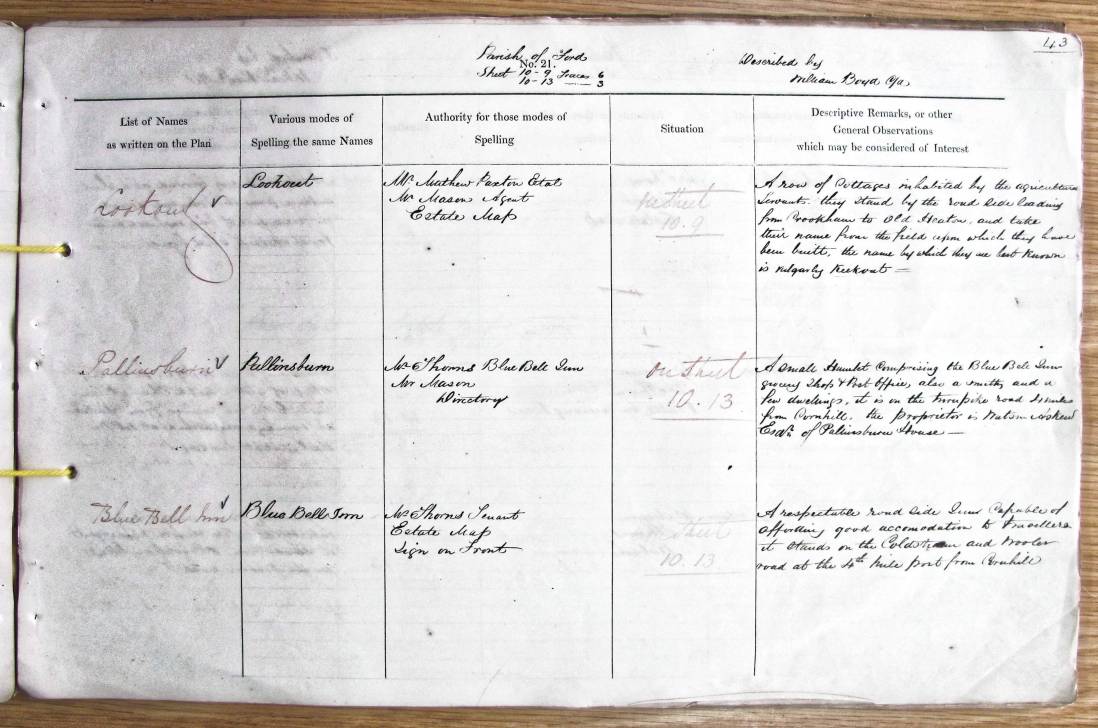 43
Parish of Ford
No. 21.
Sheet 10-9 Traces 6
10-13 —— 3
Described by
William Boyd C/a.
List of Names
as written on the Plan
Various modes of
Spelling the same Names
Authority for those modes of
Spelling
Situation
Descriptive Remarks, or other
General Observations
which may be considered of Interest
Lookout
Lookout
Mr. Mathew Paxton Etal
Mr Mason Agent
Estate Map
10.9
A row of Cottages inhabited by the agricultural
Servants. they stand by the road side leading
from Crookham to Old Heaton, and take
their name from the field upon which they have
been built, the name by which they are best known
is vulgarly Keekout —
Pallinsburn
Pallinsburn
Mr Thorns Blue Bell Inn
Mr Mason
Directory
on Sheet
10.13
A small Hamlet Comprising the Blue Bell Inn
grocery Shop & Post Office, also a smithy and a
few dwellings, it is on the Turnpike road 4 miles
from Cornhill. the proprietor is Watson Askew
Esqr. of Pallinsburn House —
Blue Bell Inn
Blue Bell Inn
Mr Thorns Tenant
Estate Map
Sign on Front
10.13
A respectable road side Inn Capable of
affording good accomodation to travellers
it stands on the Coldstream and Wooler
road at the 4th mile post from Cornhill